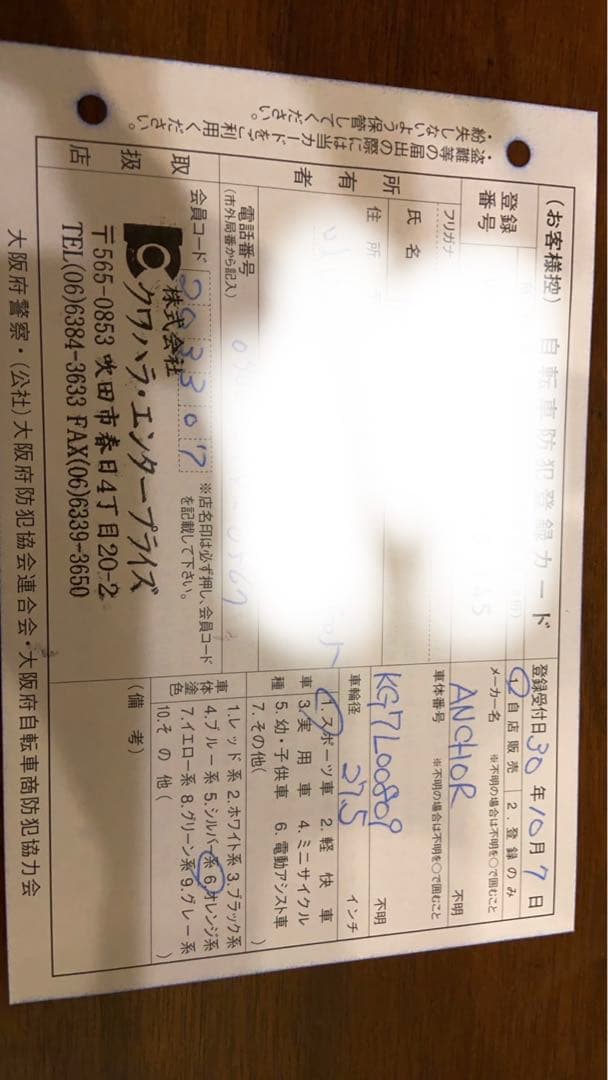 (お客様控) 自転車防犯登録カード
登録番号
フリガナ
氏名
所有者
住所
電話番号
(市外局番から記入)
取扱店
会員コード 2033017
※店名印は必ず押し、会員コードを記載して下さい。
株式会社
クワハラ・エンタープライズ
〒565-0853 吹田市春日4丁目20-2
TEL(06)6384-3633 FAX(06)6339-3650
登録受付日 30年10月7日
1.自店販売 2.登録のみ
メーカー名 ※不明の場合は不明を○で囲むこと
ANCHOR 不明
車体番号 ※不明の場合は不明を○で囲むこと
KG7L00809 不明
車輪径 27.5 インチ
車種
1.スポーツ車 2.軽快車
3.実用車 4.ミニサイクル
5.幼・子供車 6.電動アシスト車
7.その他( )
車体塗色
1.レッド系 2.ホワイト系 3.ブラック系
4.ブルー系 5.シルバー系 6.オレンジ系
7.イエロー系 8.グリーン系 9.グレー系
10.その他( )
(備考)
・盗難等の届出の際には当カードをご利用ください。
・紛失しないよう保管してください。
大阪府警察・(公社)大阪府防犯協会連合会・大阪府自転車商防犯協力会